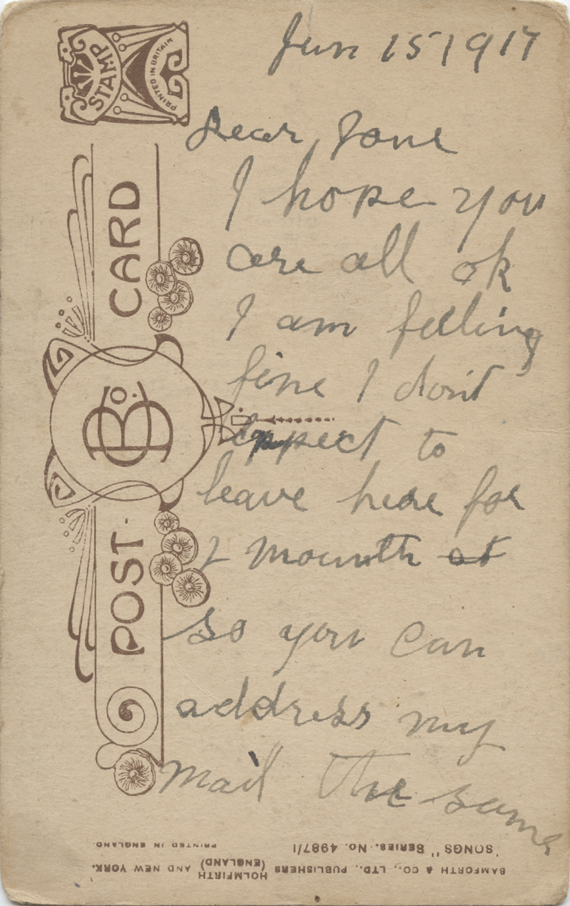 Jun 15 1917
Dear Jane
I hope you
are all ok
I am felling
fine I dont
expect to
leave here for
2 mounth at
so you can
address my
mail the same
STAMP
PRINTED IN BRITAIN
POST CARD
B Co.
BAMFORTH & CO., LTD., PUBLISHERS (ENGLAND) HOLMFIRTH AND NEW YORK.
"SONGS" SERIES. No. 4987/1
PRINTED IN ENGLAND